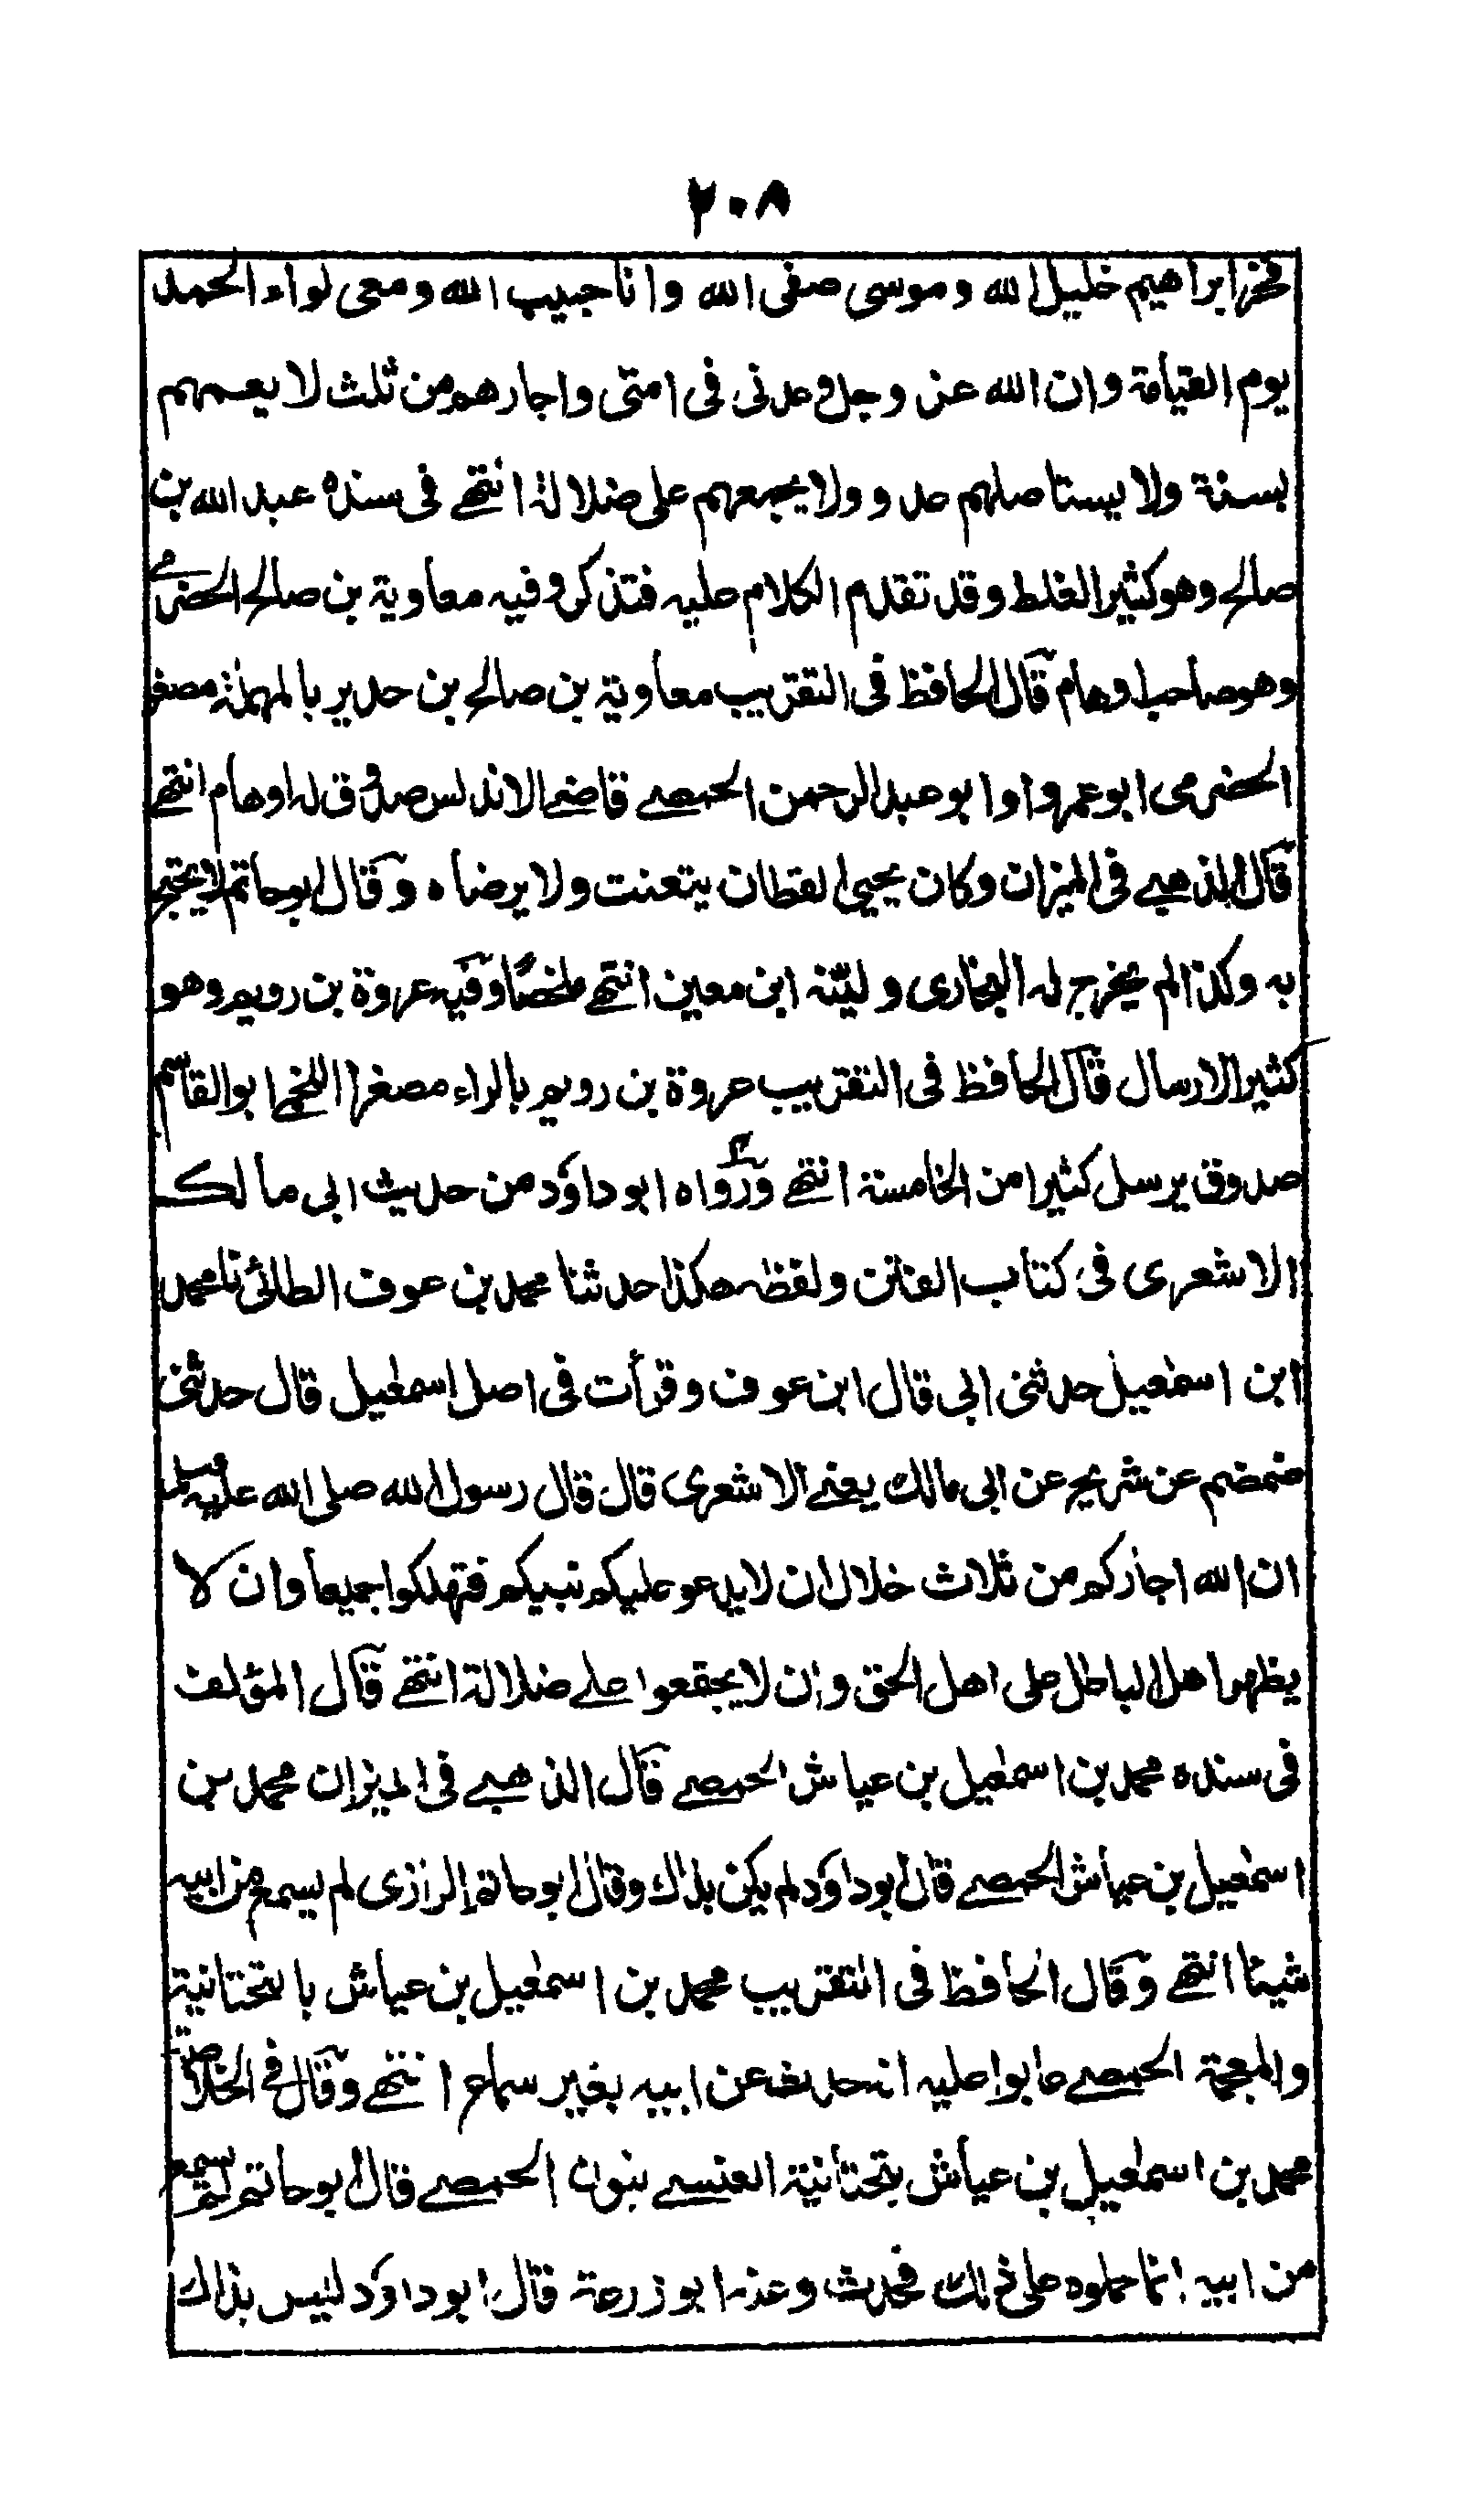 ٢٠٨
فخر ابراهيم خليل الله وموسى صفى الله وانا حبيب الله ومعى لواء الحمد
يوم القيامة وان الله عز وجل وعدنى فى امتى واجارهم من ثلث لا يعمهم
بسنة ولا يستاصلهم عدو ولا يجمعهم على ضلالة انتهے فى سنده عبد الله بن
صالح وهو كثير الغلط وقد تقدم الكلام عليه فتذكر وفيه معاوية بن صالح الحضرمے
وهو صاحب اوهام قال الحافظ فى التقريب معاوية بن صالح بن حدير بالمهملة مصغر
الحضرمى ابو عمرو او ابو عبد الرحمن الحمصے قاضے الاندلس صدوق له اوهام انتهے
قال الذهبے فى الميزان وكان يحيى القطان يتعنت ولا يرضاه وقال ابو حاتم لا يحتج
به وكذا لم يخرج له البخارى وليّنه ابن معين انتهے ملخصًا وفيه عروة بن رويم وهو
كثير الارسال قال الحافظ فى التقريب عروة بن رويم بالراء مصغرا اللخمے ابو القاسم
صدوق يرسل كثيرا من الخامسة انتهے ورواه ابو داؤد من حديث ابى مالك
الاشعرى فى كتاب الفتن ولفظه هكذا حدثنا محمد بن عوف الطائى نا محمد
ابن اسمعيل حدثنى ابى قال ابن عوف وقرأت فى اصل اسمعيل قال حدثنى
ضمضم عن شريح عن ابى مالك يعنے الاشعرى قال قال رسول الله صلى الله عليه وسلم
ان الله اجاركم من ثلاث خلال ان لا يدعو عليكم نبيكم فتهلكوا جميعا وان لا
يظهر اهل الباطل على اهل الحق وان لا يجتمعوا علے ضلالة انتهے قال المؤلف
فى سنده محمد بن اسمعيل بن عياش الحمصے قال الذهبے فى الميزان محمد بن
اسمعيل بن عياش الحمصے قال ابو داؤد لم يكن بذاك وقال ابو حاتم الرازى لم يسمع من ابيه
شيئا انتهے وقال الحافظ فى التقريب محمد بن اسمعيل بن عياش بالتحتانية
والمعجمة الحمصے عابوا عليه انه حدث عن ابيه بغير سماع انتهے وقال فے الخلاصة
محمد بن اسمعيل بن عياش بتحتانية العنسے بنون الحمصے قال ابو حاتم لم يسمع
من ابيه انما حملوه على ذلك فحدث وعنه ابو زرعة قال ابو داؤد ليس بذاك